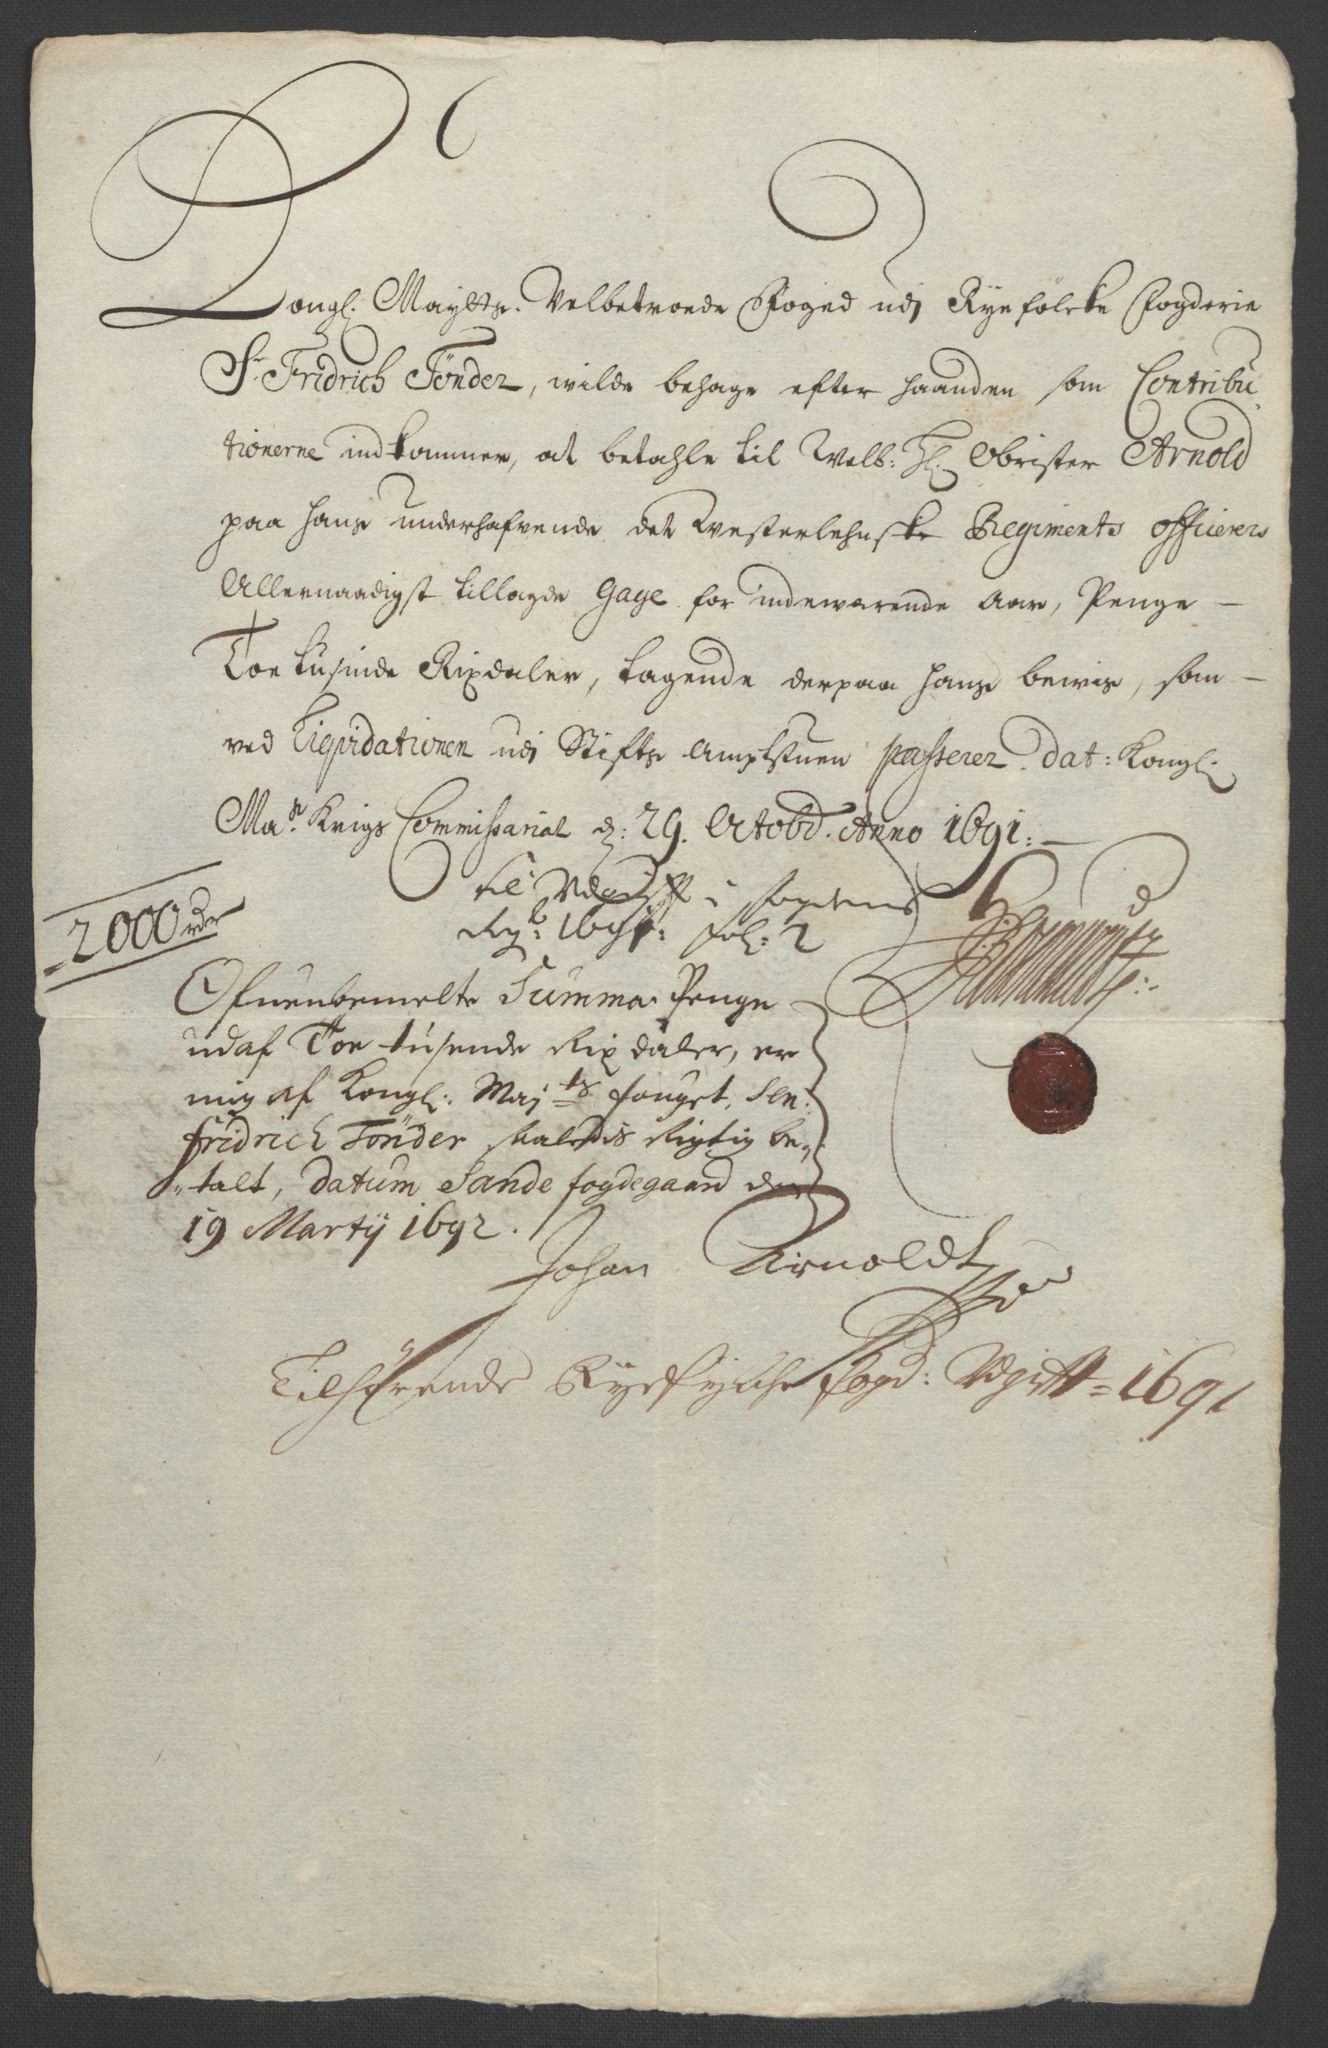 Kongl. Mayttz. Velbetroede Foged udj Ryefölcke Fogderie
Sr. Fridrich Tönder, wilde behage efter haanden som Contribu
tionerne indkommer, at betahle til Welb: Hr. Obrister Arnold
paa hans underhafvende det Westerlehnske Regiments officierers
Allernaadigst tillagde Gage for indewærende Aar, Penge –
Toe tusinde Rixdaler, tagende derpaa hans bewis, som –
ved Liqvidationen udj Stifts Amptstuen passerer. Dat: Kongl.
Mas. Krigs Commissariat d: 29. Octobr. Anno 1691. –
til Udgifft i fogdens
Regn: 1691: fol: 2
2000 rdr
Ofuenbemelte Summa Penge
udaf Toe tusende Rix daler, er
mig af Kongl: Majts fouget, Sen:
fridrich Tönder rigtig be„
„talt, datum Sande fogdegaard den
19 Martij 1692.
Johan Arnoldt
Tilhörende Ryefylche fogd: Udgifft = 1691